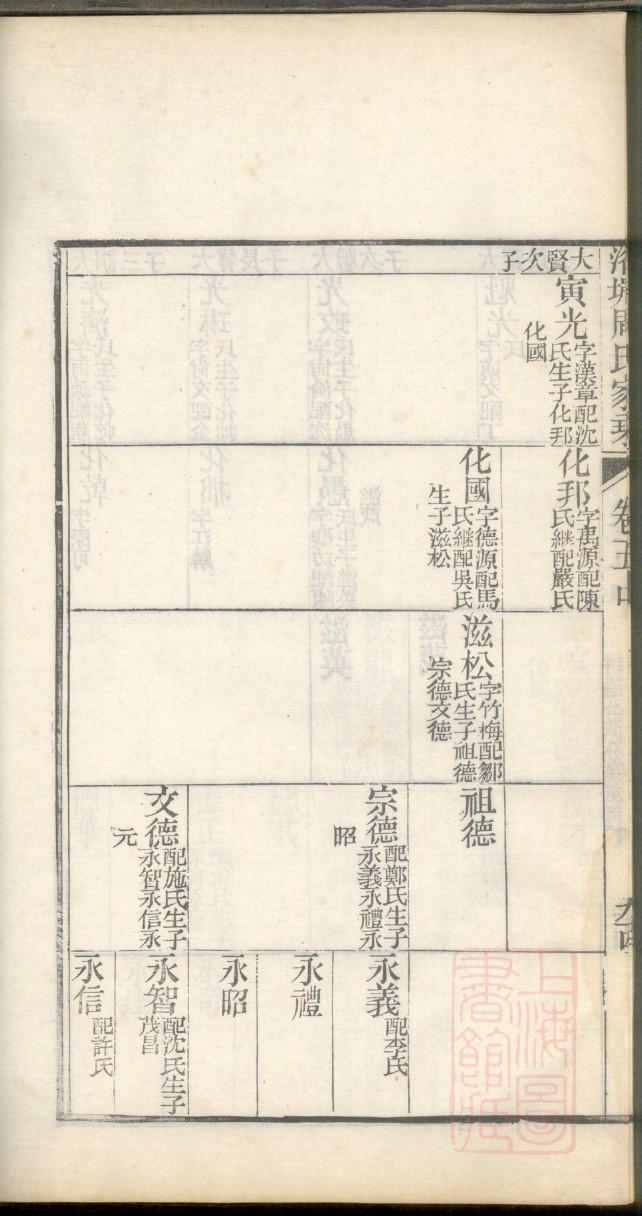 周氏家乘
卷五中
九四
大賢次子
寅光
字漢章配沈
氏生子化邦
化國
化邦
字禹源配陳
氏繼配嚴氏
化國
字德源配馬
氏繼配吳氏
生子滋松
滋松
字竹梅配鄒
氏生子祖德
宗德文德
祖德
宗德
配鄭氏生子
永義永禮永
昭
文德
配施氏生子
永智永信永
元
永義
配李氏
永禮
永昭
永智
配沈氏生子
茂昌
永信
配許氏
上海圖
書館藏